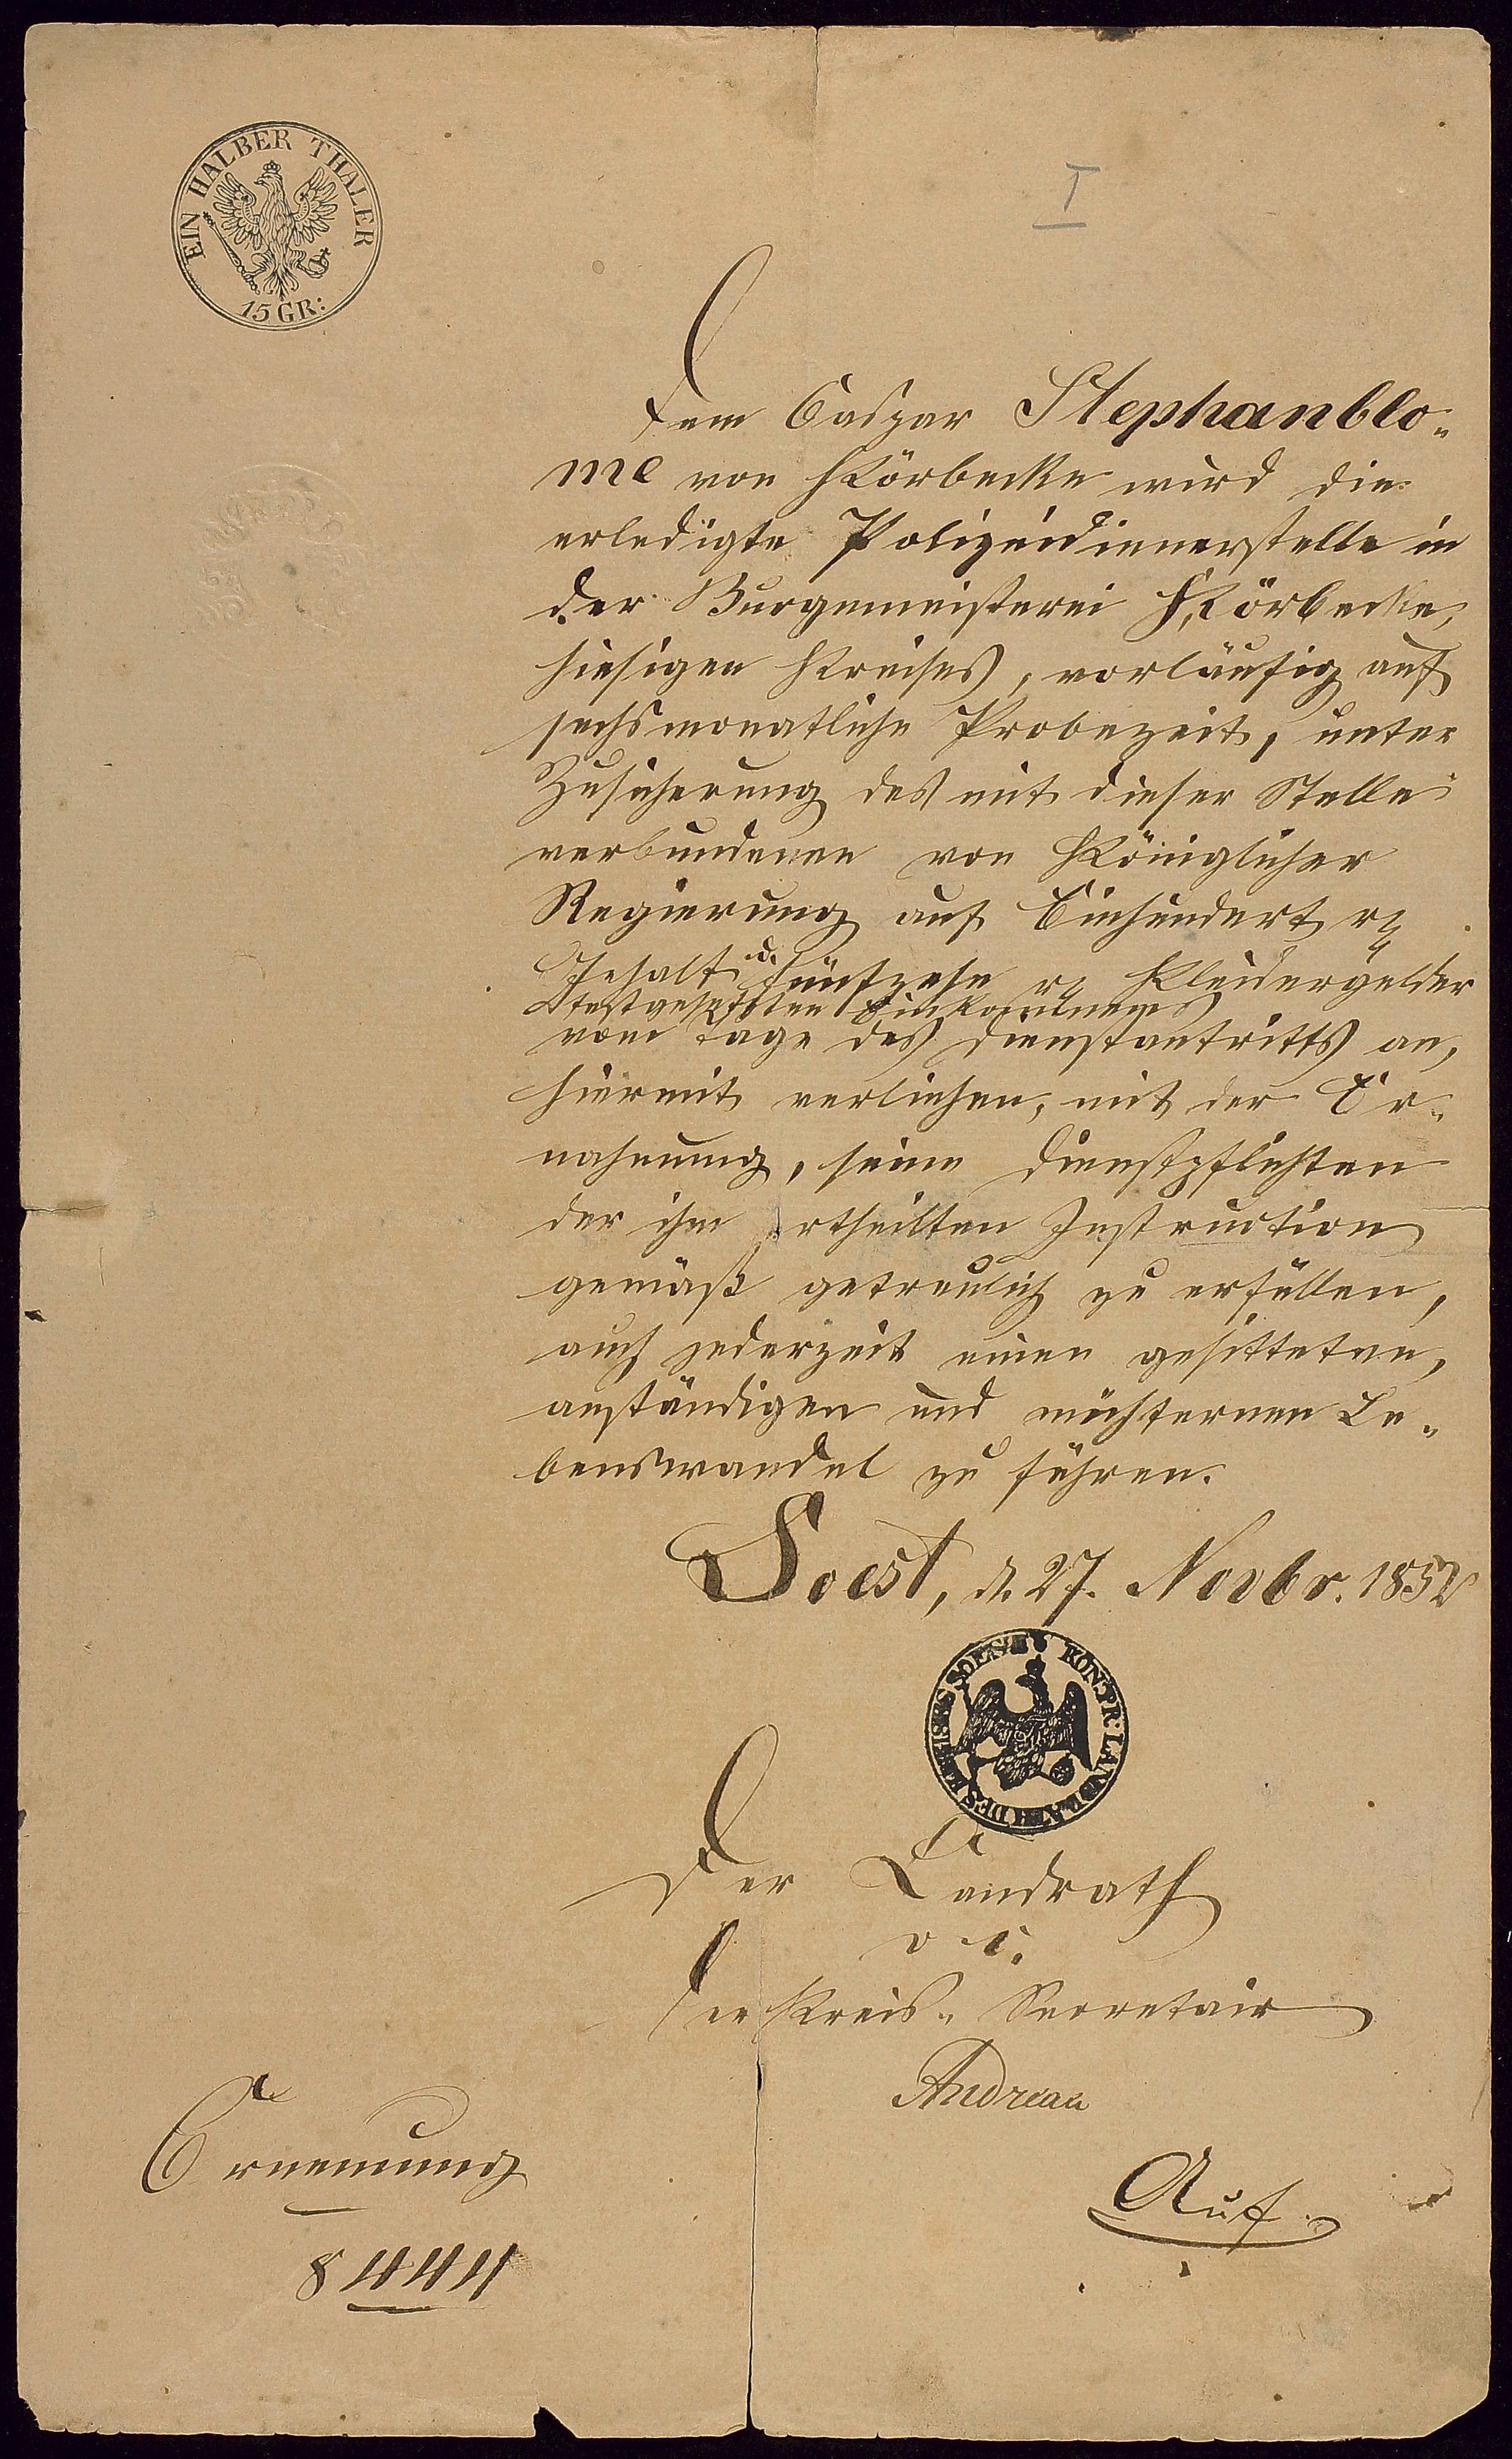 EIN HALBER THALER
15 GR:
I
Dem Caspar Stephanblo-
me von Körbecke wird die
erledigte Polizeidienerstelle in
der Burgemeisterei Körbecke,
hiesigen Kreises, vorläufig auf
sechsmonatliche Probezeit, unter
Zusicherung des mit dieser Stelle
verbundenen von Königlicher
Regierung auf Einhundert rt
Gehalt u. fünfzehn rt Kleidergelder
festgesetzten Einkommens
vom Tage des Dienstantritts an,
hiermit verliehen, mit der Er-
mahnung, seine Dienstpflichten
der ihm ertheilten Instruction
gemäß getreulich zu erfüllen,
auch jederzeit einen gesitteten,
anständigen und nüchternen Le-
benswandel zu führen.
Soest, d. 27. Novbr. 1852
KÖN: PR: LANDRATH DES KREISES SOEST
Der Landrath
v. c.
Der Kreis-Secretair
Andreae
Ernennung
8444